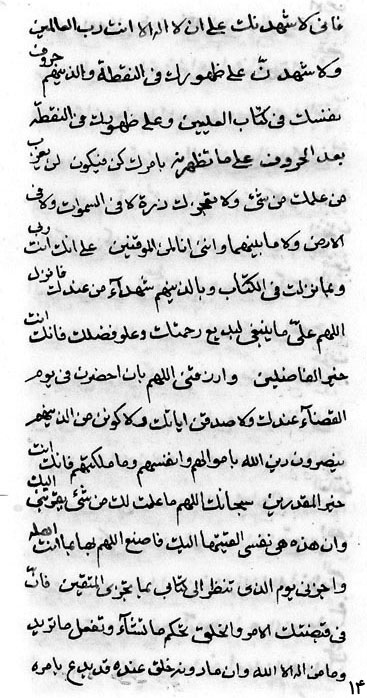 فانى لاشهدنك على ان لا اله الا انت رب العالمين
ولاشهدنّ على ظهورك فى النقطة والذينهم حروف
نفسك فى كتاب العليين وعلى ظهورك فى النقطة
بعد الحروف على ما تظهرنه بامرك كن فيكون لن يعزب
من علمك من شئ ولا يعجزك ذرة لا فى السموات ولا فى
الارض ولا ما بينهما واننى انا لمن الموقنين على انك انت ربى
وبما نزلت فى الكتاب وبالذينهم شهدآء من عندك فانزل
اللهم علىّ ما ينبغى لبديع رحمتك وعلو فضلك فانك انت
خير الفاضلين وارزقنى اللهم بان احضرن فى يوم
القضآء عندك ولاصدقن اياتك ولاكونن من الذينهم
ينصرون دين الله باموالهم وانفسهم وما ملكتهم فانك انت
خير المقدرين سبحانك اللهم ما علمت لك من شئ يقربنى اليك
وان هذه هى نفسى القيتها اليك فاصنع اللهم بها ما انت اهله
واجزنى يوم الذى تنظر الى كتابى بما تجزى المتقين فانّ
فى قبضتك الامر والخلق تحكم ما تشآء وتفعل ما تريد
وما من اله الا الله وان ما دونه خلق عنده قد بدع بامره
١٣